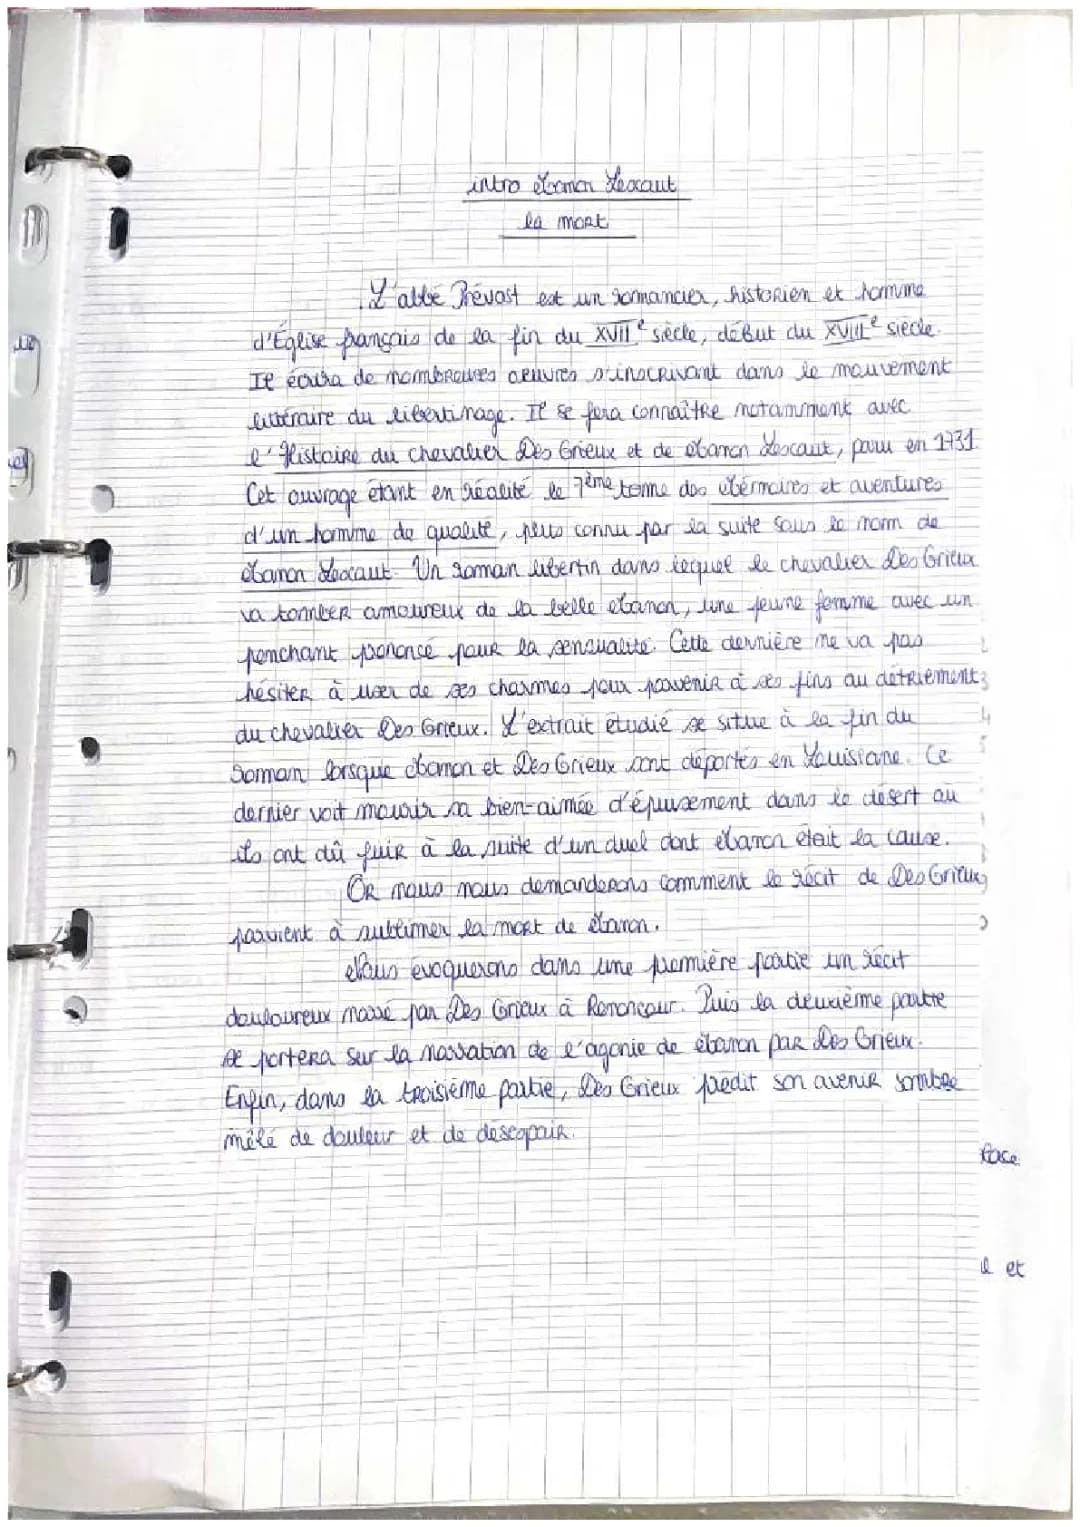 intro Manon Lescaut
la mort
L'abbé Prévost est un romancier, historien et homme
d'Église français de la fin du XVIIe siècle, début du XVIIIe siècle.
Il écrira de nombreuses œuvres s'inscrivant dans le mouvement
littéraire du libertinage. Il se fera connaître notamment avec
l'Histoire du chevalier Des Grieux et de Manon Lescaut, paru en 1731.
Cet ouvrage étant en réalité le 7ème tome des Mémoires et aventures
d'un homme de qualité, plus connu par la suite sous le nom de
Manon Lescaut. Un roman libertin dans lequel le chevalier Des Grieux
va tomber amoureux de la belle Manon, une jeune femme avec un
penchant prononcé pour la sensualité. Cette dernière ne va pas
hésiter à user de ses charmes pour parvenir à ses fins au détriement
du chevalier Des Grieux. L'extrait étudié se situe à la fin du
roman lorsque Manon et Des Grieux sont déportés en Louisiane. Ce
dernier voit mourir sa bien-aimée d'épuisement dans le désert où
ils ont dû fuir à la suite d'un duel dont Manon était la cause.
Or nous nous demanderons comment le récit de Des Grieux
parvient à sublimer la mort de Manon.
Nous évoquerons dans une première partie un récit
douloureux narré par Des Grieux à Renoncour. Puis la deuxième partie
se portera sur la narration de l'agonie de Manon par Des Grieux.
Enfin, dans la troisième partie, Des Grieux prédit son avenir sombre
mêlé de douleur et de desespoir.
et